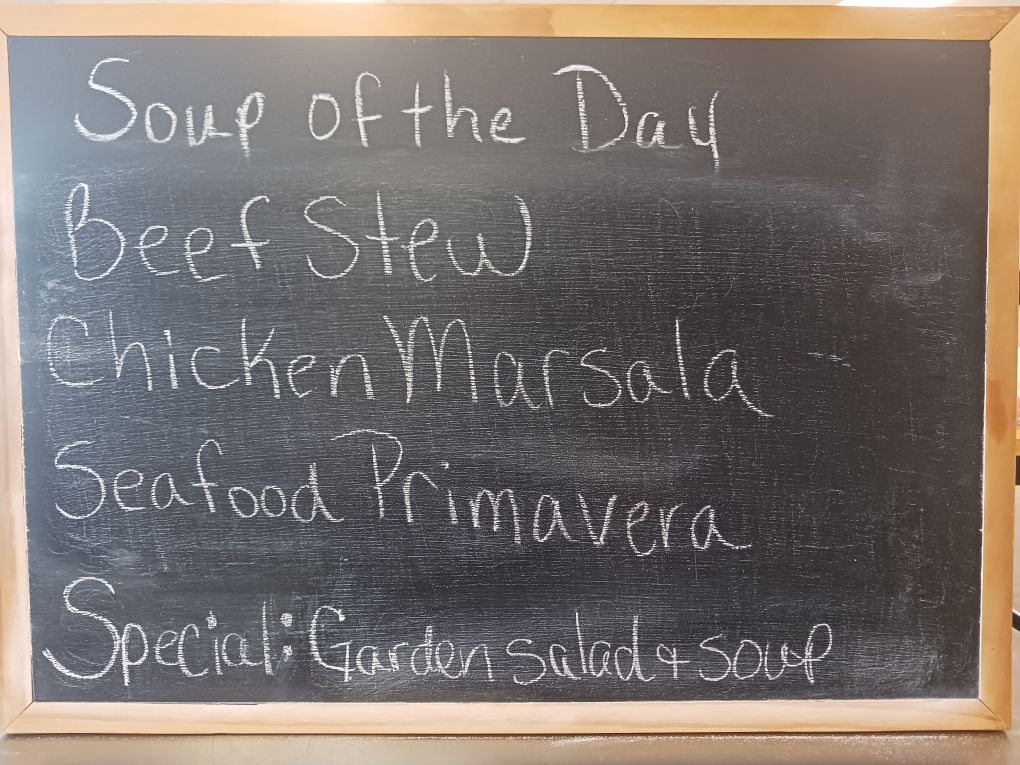 Soup of the Day
Beef Stew
Chicken Marsala
Seafood Primavera
Special: Garden salad & soup